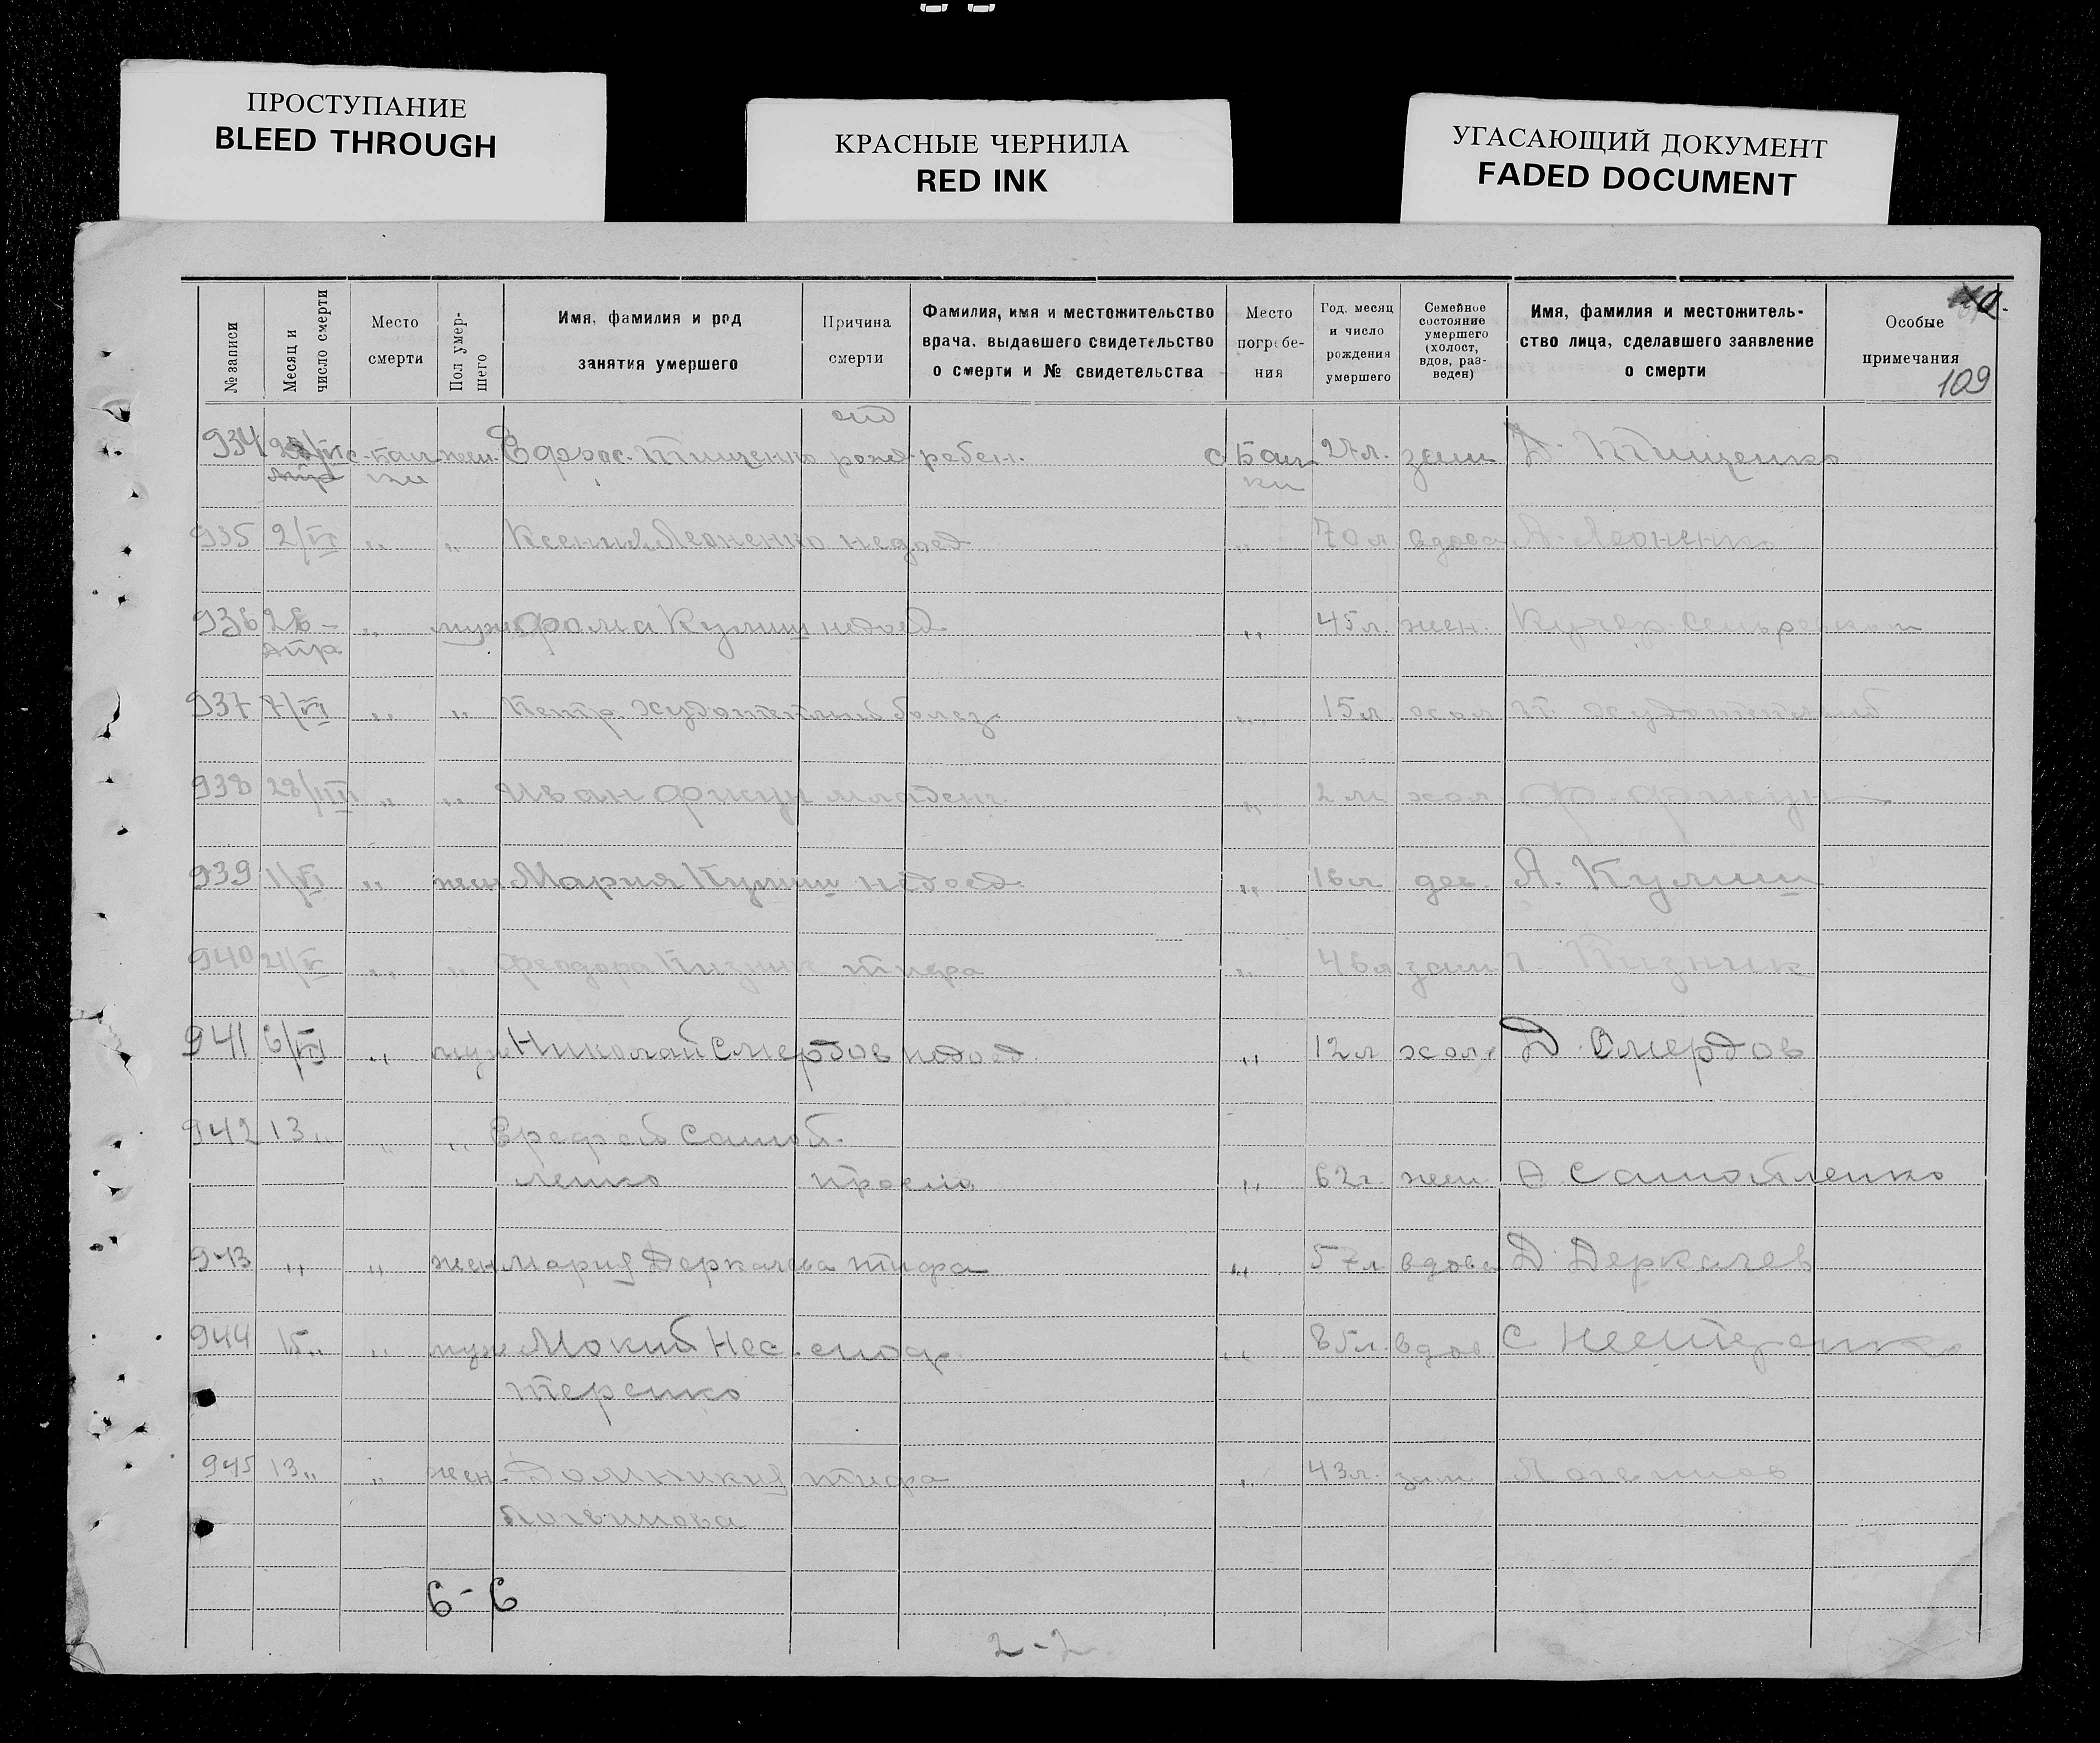 ПРОСТУПАНИЕ
BLEED THROUGH
КРАСНЫЕ ЧЕРНИЛА
RED INK
УГАСАЮЩИЙ ДОКУМЕНТ
FADED DOCUMENT
№ записи
Месяц и
число смерти
Место
смерти
Пол умер-
шего
Имя, фамилия и род
занятия умершего
Причина
смерти
Фамилия, имя и местожительство
врача, выдавшего свидетельство
о смерти и № свидетельства
Место
погребе-
ния
Год, месяц
и число
рождения
умершего
Семейное
состояние
умершего
(холост,
вдов, раз-
веден)
Имя, фамилия и местожитель-
ство лица, сделавшего заявление
о смерти
Особые
примечания
109
934 жен. Ефрос. Тищенко рожд ребен. с Баш 27л. зам Д. Тищенко
ки ки
935 2/VI „ „ Ксения Леоненко недоед „ 70л. вдова А. Леоненко
936 26 - „ муж Фома Кулиш недоед „ 45л. жен. Кучер
Апр
937 7/VI „ „ Петр. болез „ 15л хол П.
938 28/III „ „ Иван Фикун младенч. „ 2 м. хол Ф. Фикун
939 1/VI „ жен Мария Кулиш недоед. „ 16л дев. А. Кулиш
940 21/V „ „ Феодора Кизник тифа „ 46л. зам Г. Кизник
941 6/VI „ муж Николай Смердов недоед „ 12л хол. Д. Смердов
942 13 „ „ „ Самой-
ленко „ 62г. жен. Самойленко
943 „ „ жен Мария Деркачева тифа „ 57л. вдова Д. Деркачев
944 15 „ „ муж Мокий Нес- „ 85л. вдов С Нестеренко
теренко
945 13 „ „ жен. Домникия тифа „ 43л. зам
Логвинова
6-6
2-2